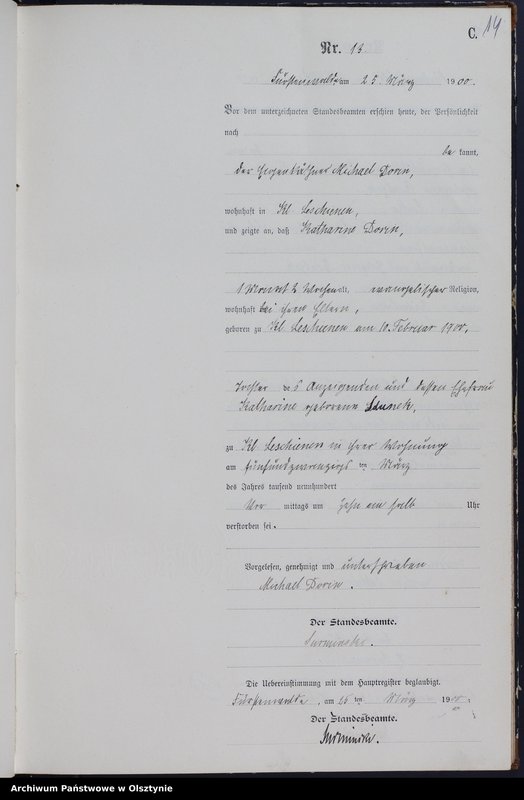 C. 14
Nr. 13
Fürstenwalde am 25. März 1900.
Vor dem unterzeichneten Standesbeamten erschien heute, der Persönlichkeit
nach
be kannt,
der Eigenkäthner Michael Dorin,
wohnhaft in Kl Leschienen,
und zeigte an, daß Katharine Dorin,
1 Monat 2 Wochen alt, evangelischer Religion,
wohnhaft bei ihren Eltern,
geboren zu Kl Leschienen am 10. Februar 1900,
Tochter des Anzeigenden und dessen Ehefrau
Katharine geborene
zu Kl Leschienen in ihrer Wohnung
am fünfundzwanzigsten März
des Jahres tausend neunhundert
Vor mittags um zehn ein halb Uhr
verstorben sei.
Vorgelesen, genehmigt und unterschrieben
Michael Dorin.
Der Standesbeamte.
Surminski.
Die Uebereinstimmung mit dem Hauptregister beglaubigt.
Fürstenwalde, am ten März 1900.
Der Standesbeamte.
Surminski.
Archiwum Państwowe w Olsztynie